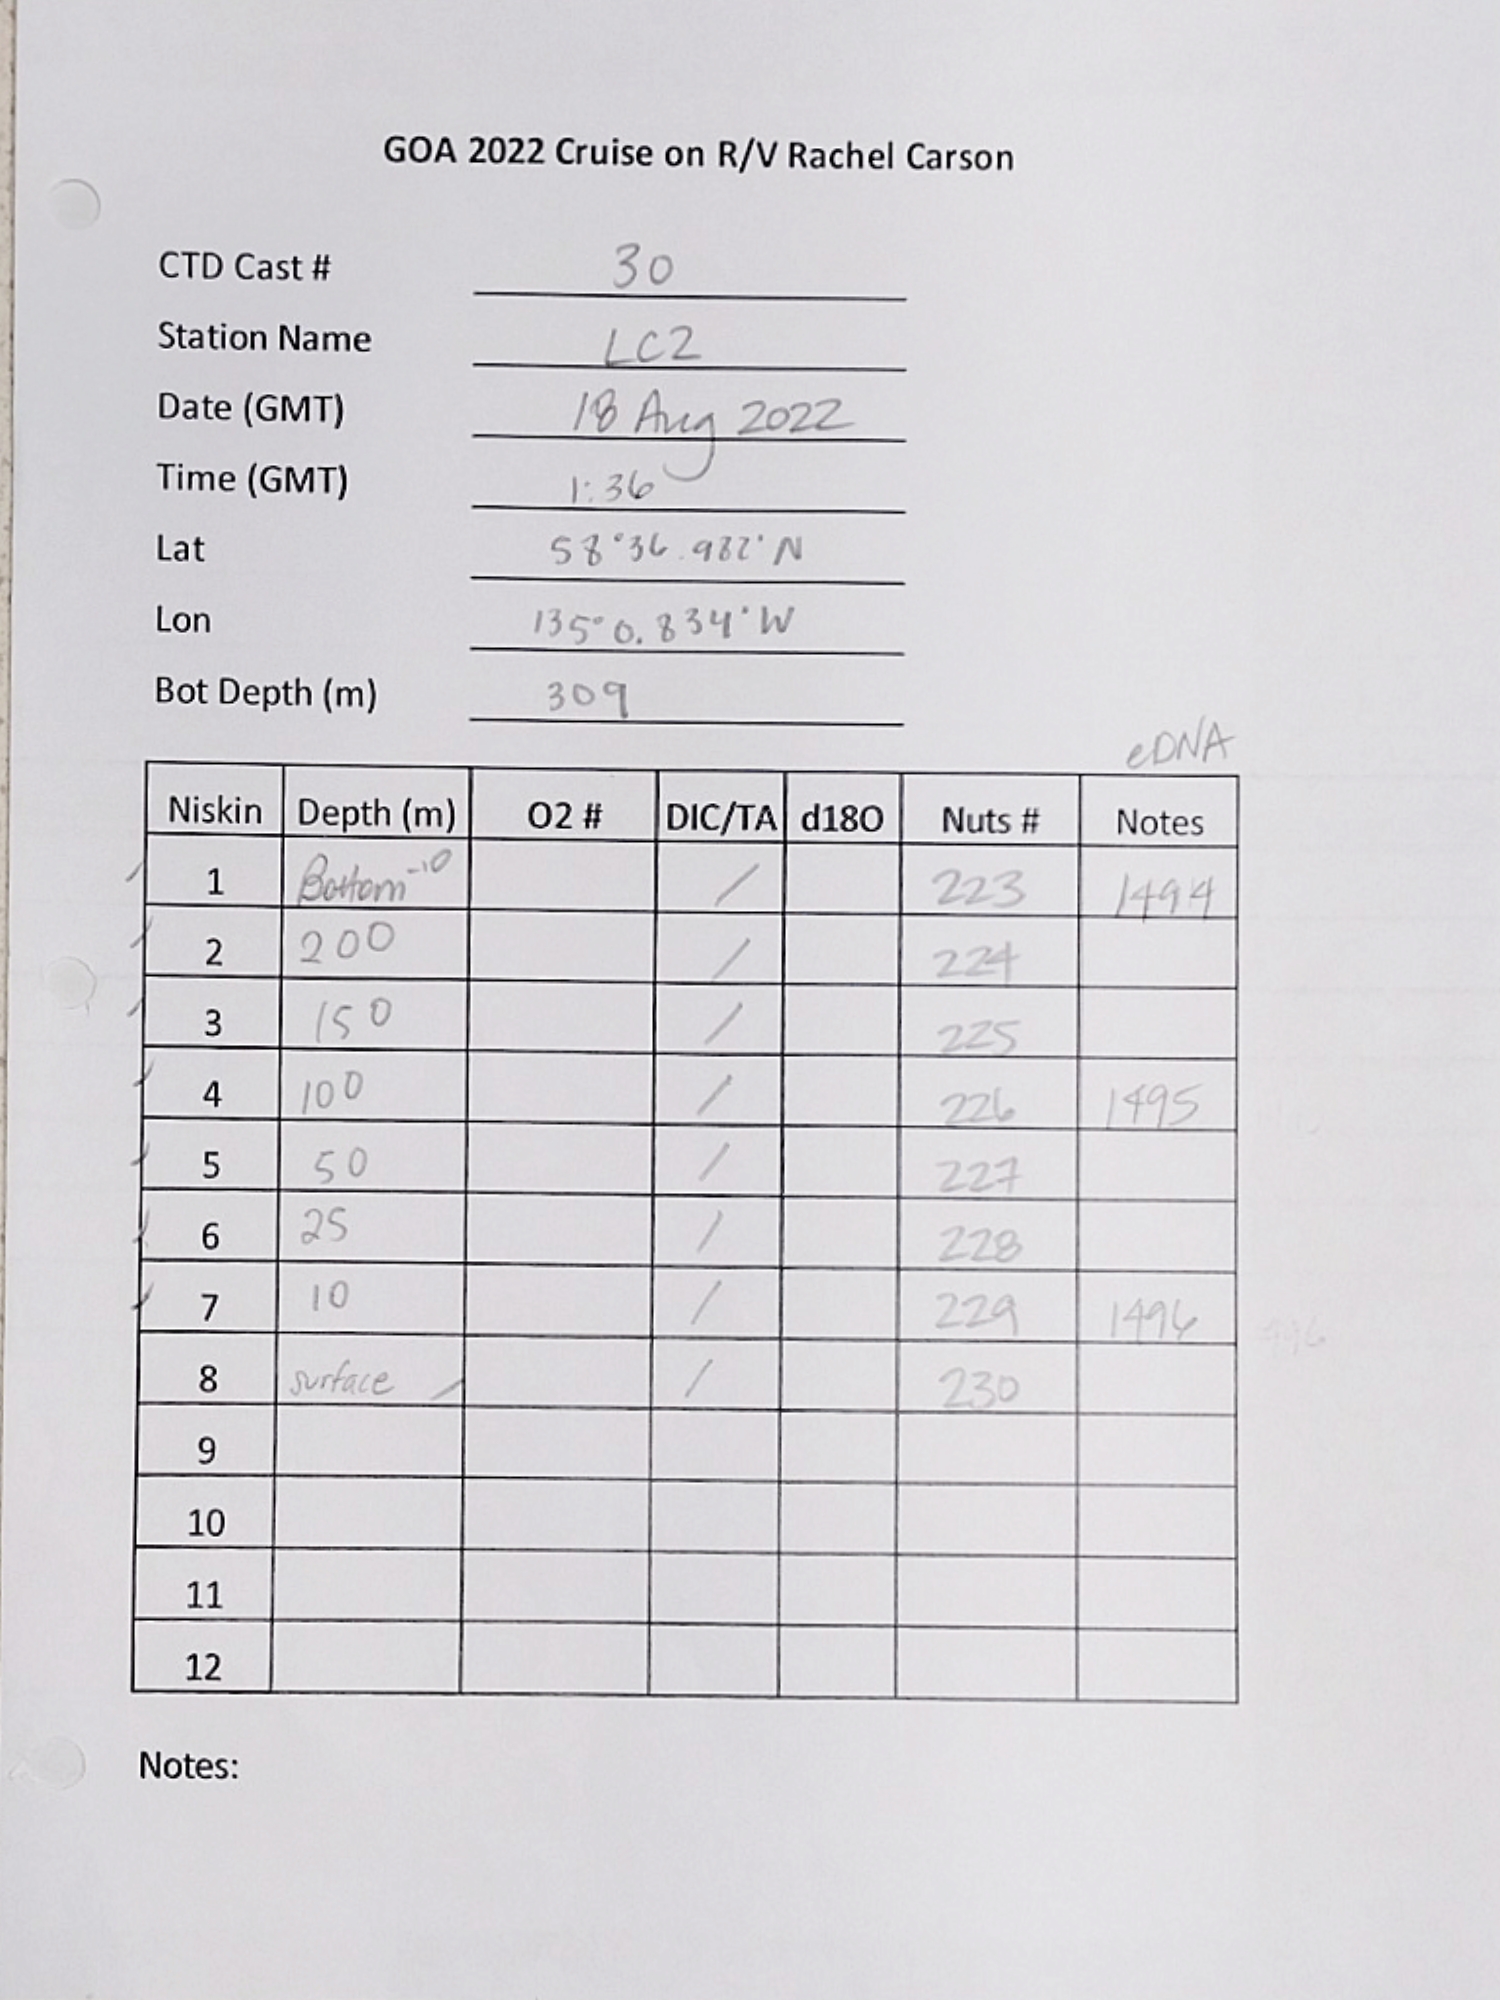 GOA 2022 Cruise on R/V Rachel Carson
CTD Cast # 30
Station Name LC2
Date (GMT) 18 Aug 2022
Time (GMT) 1:36
Lat 58°36.982' N
Lon 135°0.834' W
Bot Depth (m) 309
eDNA
Niskin Depth (m) O2 # DIC/TA d18O Nuts # Notes
1 Bottom-10 / 223 1494
2 200 / 224
3 150 / 225
4 100 / 226 1495
5 50 / 227
6 25 / 228
7 10 / 229 1496
8 surface / / 230
9
10
11
12
Notes: